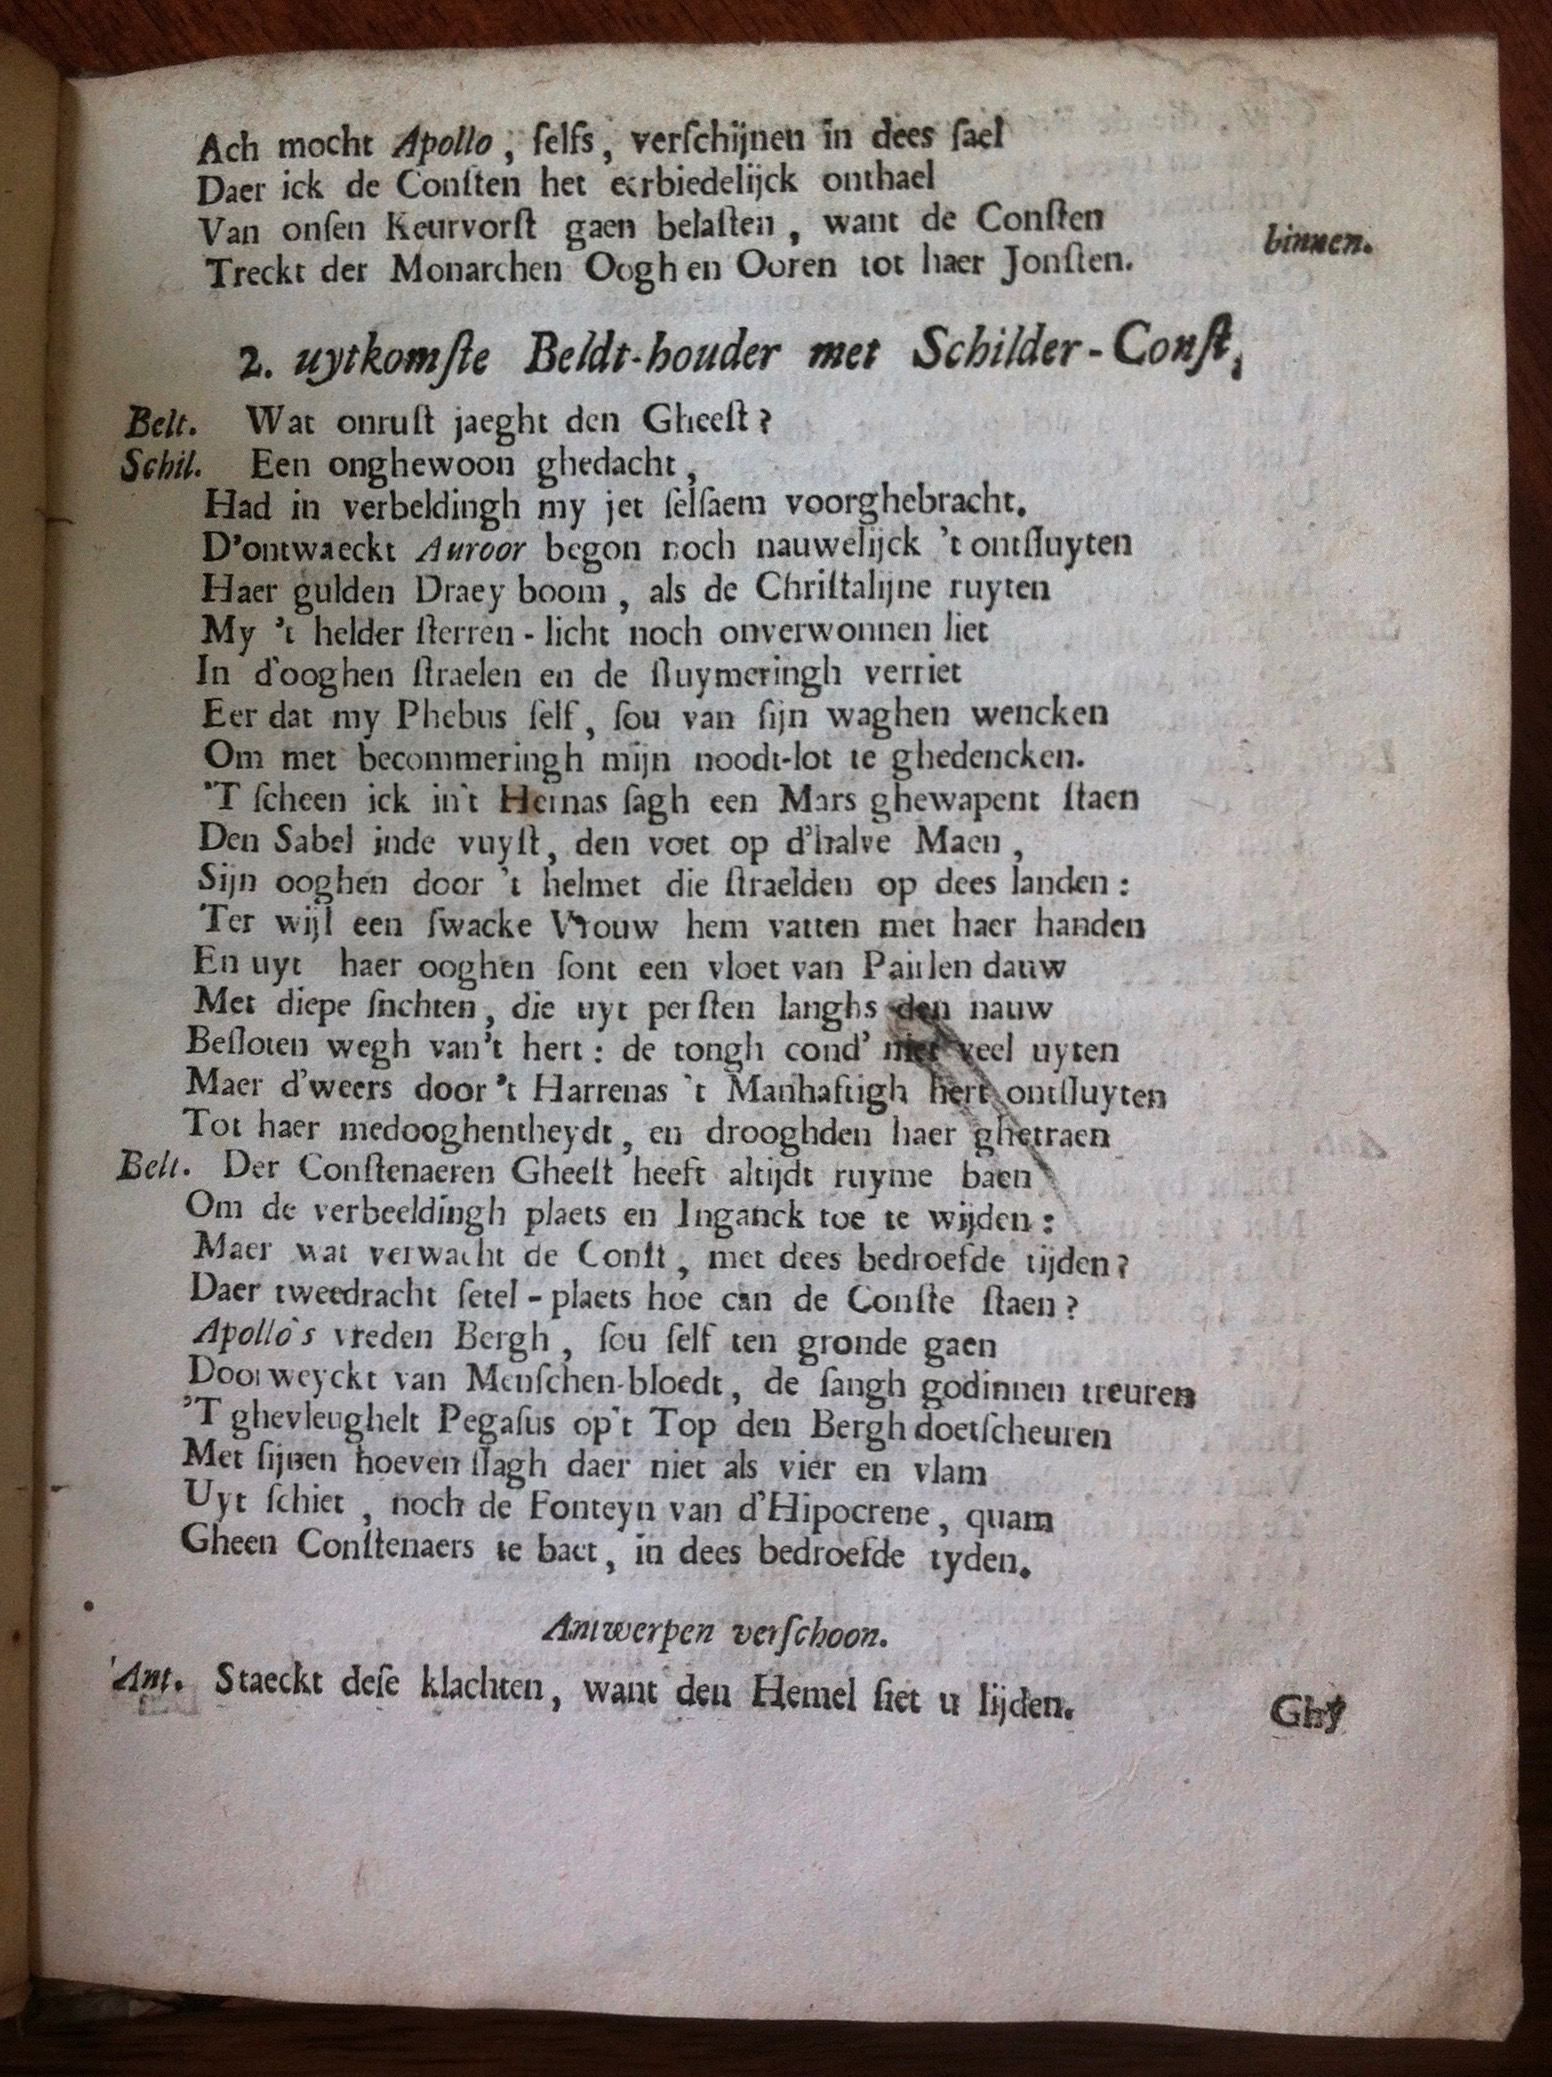 Ach mocht Apollo, ſelfs, verſchijnen in dees ſael
Daer ick de Conſten het eerbiedelijck onthael
Van onſen Keurvorſt gaen belaſten, want de Conſten
Treckt der Monarchen Oogh en Ooren tot haer Jonſten.
binnen.
2. uytkomſte Beldt-houder met Schilder-Conſt,
Belt. Wat onruſt jaeght den Gheeſt?
Schil. Een onghewoon ghedacht,
Had in verbeldingh my jet ſelſaem voorghebracht.
D'ontwaeckt Auroor begon noch nauwelijck 't ontſluyten
Haer gulden Draey boom, als de Chriſtalijne ruyten
My 't helder ſterren-licht noch onverwonnen liet
In d'ooghen ſtraelen en de ſluymeringh verriet
Eer dat my Phebus ſelf, ſou van ſijn waghen wencken
Om met becommeringh mijn noodt-lot te ghedencken.
'T ſcheen ick in't Hernas ſagh een Mars ghewapent ſtaen
Den Sabel inde vuyſt, den voet op d'halve Maen,
Sijn ooghen door 't helmet die ſtraelden op dees landen:
Ter wijl een ſwacke Vrouw hem vatten met haer handen
En uyt haer ooghen ſont een vloet van Paerlen dauw
Met diepe ſuchten, die uyt perſten langhs den nauw
Beſloten wegh van't hert: de tongh cond' niet veel uyten
Maer d'weers door 't Harrenas 't Manhaftigh hert ontſluyten
Tot haer medooghentheydt, en drooghden haer ghetraen
Belt. Der Conſtenaeren Gheeſt heeft altijdt ruyme baen
Om de verbeeldingh plaets en Inganck toe te wijden:
Maer wat verwacht de Conſt, met dees bedroefde tijden?
Daer tweedracht ſetel-plaets hoe can de Conſte ſtaen?
Apollo's vreden Bergh, ſou ſelf ten gronde gaen
Doorweyckt van Menſchen-bloedt, de ſangh godinnen treuren
'T ghevleughelt Pegaſus op't Top den Bergh doetſcheuren
Met ſijnen hoeven ſlagh daer niet als vier en vlam
Uyt ſchiet, noch de Fonteyn van d'Hipocrene, quam
Gheen Conſtenaers te baet, in dees bedroefde tyden.
Antwerpen verſchoon.
Ant. Staeckt deſe klachten, want den Hemel ſiet u lijden.
Ghy